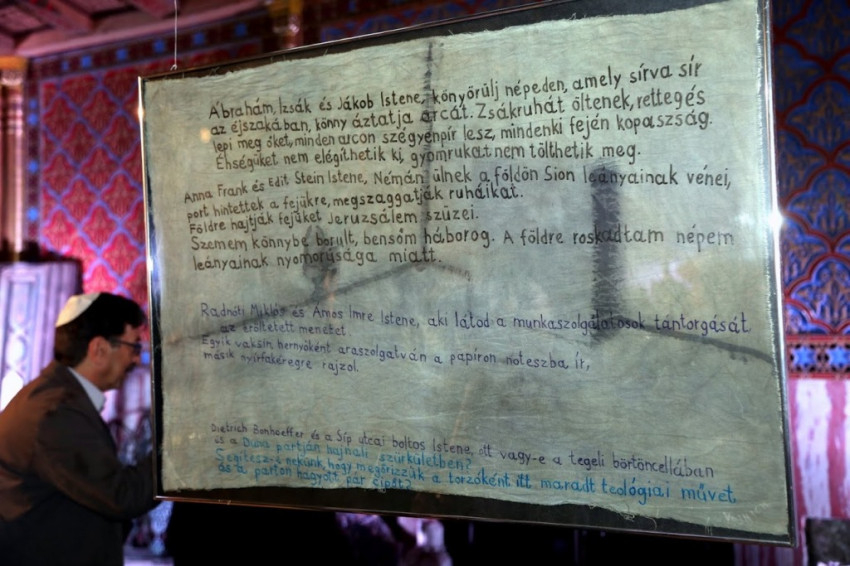 Ábrahám, Izsák és Jákob Istene, könyörülj népeden, amely sírva sír
az éjszakában, könny áztatja arcát. Zsákruhát öltenek, rettegés
lepi meg őket, minden arcon szégyenpír lesz, mindenki fején kopaszság.
Éhségüket nem elégíthetik ki, gyomrukat nem tölthetik meg.
Anna Frank és Edit Stein Istene, Némán ülnek a földön Sion leányainak vénei,
port hintettek a fejükre, megszaggatják ruháikat.
Földre hajtják fejüket Jeruzsálem szüzei.
Szemem könnybe borult, bensőm háborog. A földre roskadtam népem
leányainak nyomorúsága miatt.
Radnóti Miklós és Ámos Imre Istene, aki látod a munkaszolgálatosok tántorgását
az erőltetett menetet.
Egyik vaksin, hernyóként araszolgatván a papíron noteszba ír,
másik nyírfakéregre rajzol.
Dietrich Bonhoeffer és a Síp utcai boltos Istene, ott vagy-e a tegeli börtöncellában
és a Duna partján hajnali szürkületben?
Segítesz-e nekünk, hogy megőrizzük a torzóként itt maradt teológiai művet,
és a parton hagyott pár cipőt?